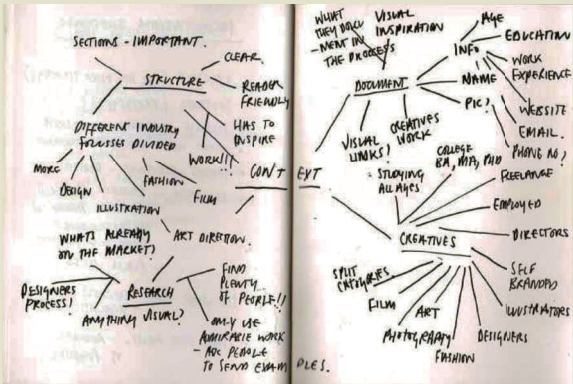 SECTIONS - IMPORTANT.
CLEAR.
STRUCTURE
READER
FRIENDLY
HAS TO
INSPIRE
WORK!!!
DIFFERENT INDUSTRY
FOCUSSES DIVIDED
MORE
DESIGN
ILLUSTRATION
FASHION
FILM
ART DIRECTION.
WHATS ALREADY
ON THE MARKET?
DESIGNERS
PROCESS!
RESEARCH
ANYTHING VISUAL?
FIND
PLENTY
OF PEOPLE!!
ONLY USE
ADMIRABLE WORK
- ASK PEOPLE
TO SEND EXAMPLES.
CONTEXT
WHAT
THEY DOCU
-MENT IN
THE PROCESS
VISUAL
INSPIRATION
DOCUMENT
VISUAL
LINKS!
CREATIVES
WORK
INFO
AGE
EDUCATION
WORK
EXPERIENCE
NAME
PIC?
WEBSITE
EMAIL.
PHONE NO?
STUDYING
ALL AGES
COLLEGE
BA, MA, PHD
FREELANCE
EMPLOYED
DIRECTORS
CREATIVES
SELF
BRANDED
ILLUSTRATORS
DESIGNERS
FASHION
ART
PHOTOGRAPHY
FILM
SPLIT
CATEGORIES.